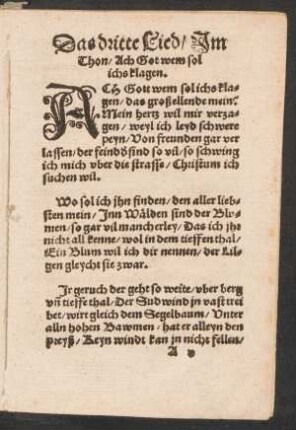 Das dritte Lied/ Im
Thon/ Ach Got wem sol
ichs klagen.
ACh Gott wem sol ichs kla-
gen/ das großellende mein?
Mein hertz wil mir verza-
gen/ weyl ich leyd schwere
peyn/ Von freunden gar ver
lassen/ der feind sind so vil/ so schwing
ich mich vber die strasse/ Christum ich
suchen wil.
Wo sol ich jhn finden/ den aller lieb-
sten mein/ Inn Wälden sind der Blu-
men/ so gar vil mancherley/ Das ich jhr
nicht all kenne/ wol in dem tieffen thal/
Ein Blum wil ich dir nennen/ der Lil-
gen gleycht sie zwar.
Ir geruch der geht so weite/ vber berg
vñ tieffe thal/ Der Sudwind jn vast trei
bet/ wirt gleich dem Segelbaum/ Vnter
alln hohen Bawmen/ hat er alleyn den
preyß/ Keyn windt kan jn nicht fellen/
A